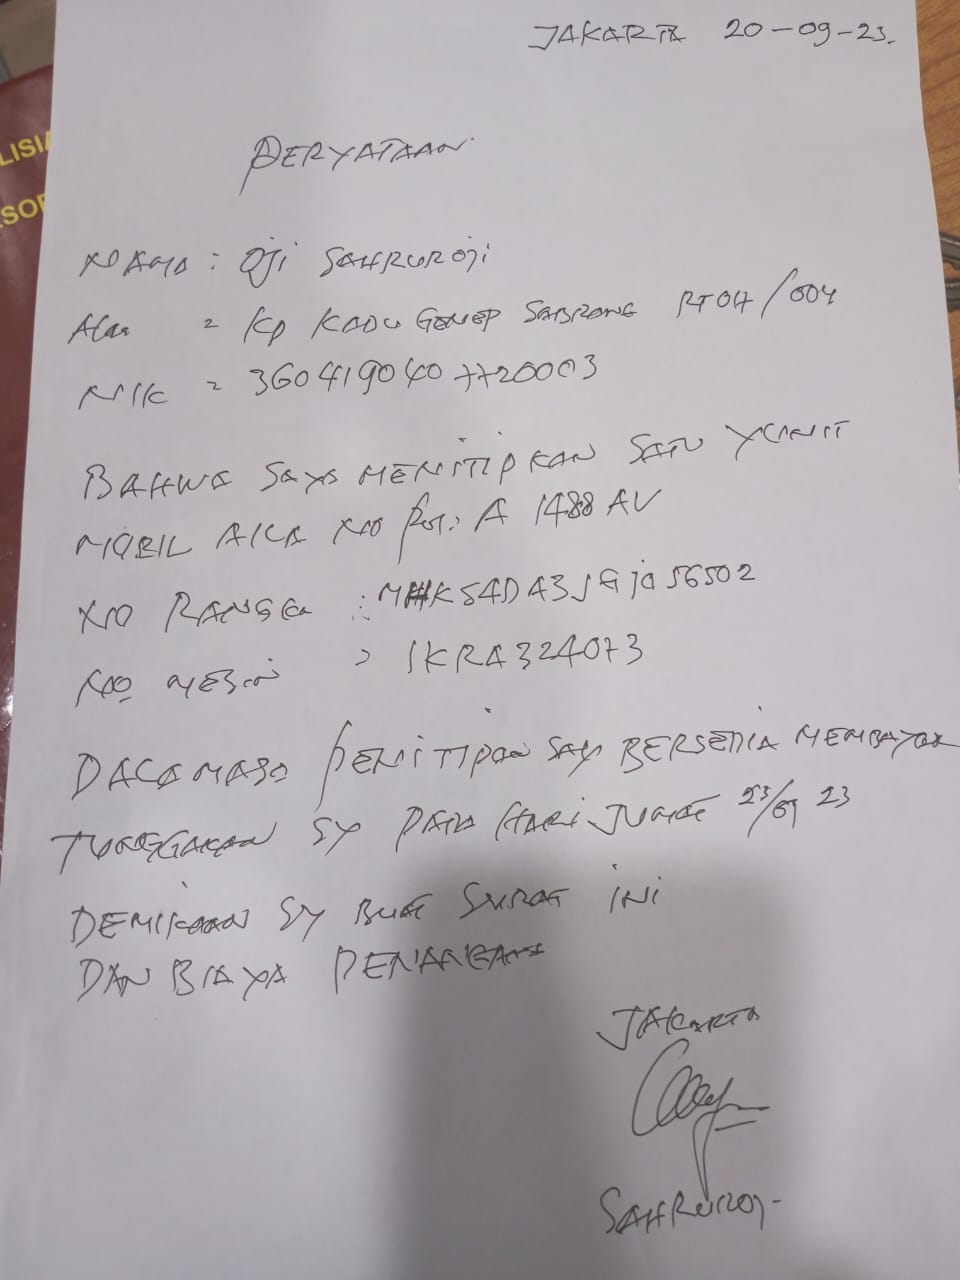 JAKARTA 20-09-23.
PERYATAAN
NAMA : OJi SAHRUROji
= KP KADU GENEP SABRANG RT 04/004
NIK = 3604190407720003
BAHWA SAYA MENITIPKAN SATU UNIT
MOBIL AILA NO Pol: A 1488 AV
NO RANGKA : MHKS4DA3JGj056502
NO MESiN > 1KRA324073
DALAM MASA PENITIPAN SAYA BERSEDIA MEMBAYAR
TUNGGAKAN SY PADA HARi JUMAT 23/09 23
DEMIKIAN SY BUAT SURAT iNi
DAN BIAYA PENANGANAN
JAKARTA
SAHRUROJ-
LISIA
SOR